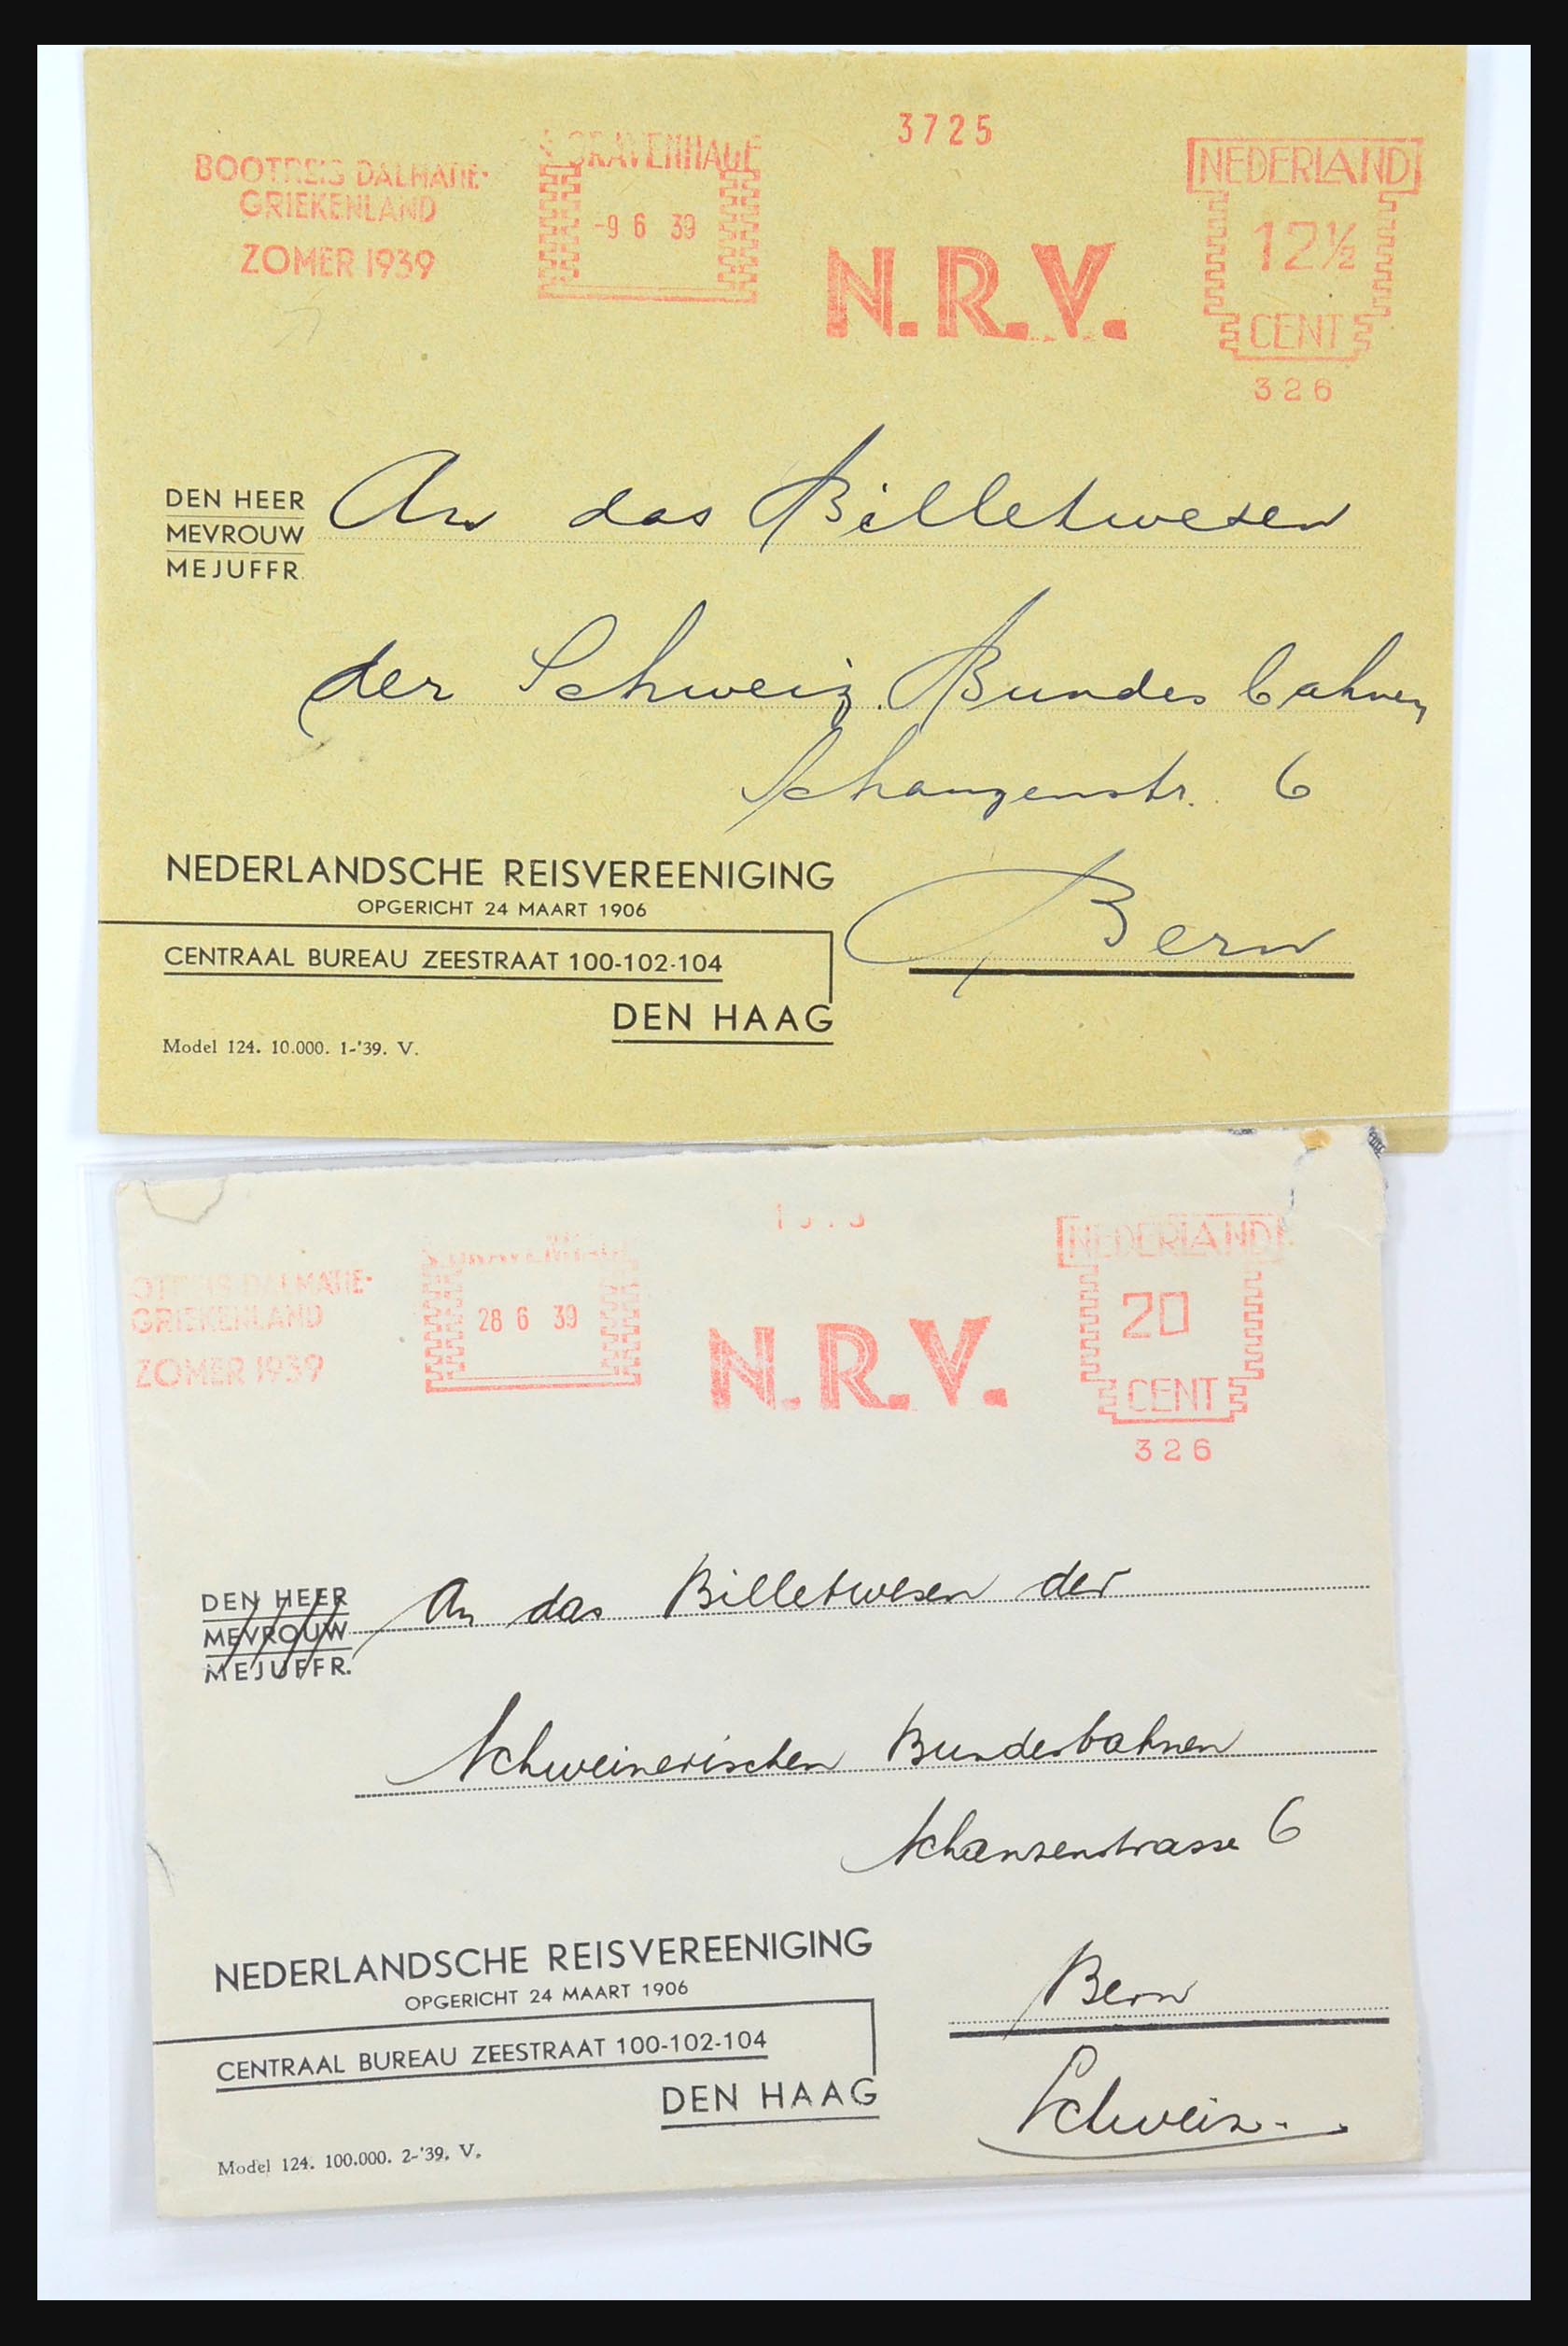 3725
BOOTREIS DALMATIE-
GRIEKENLAND
ZOMER 1939
'S GRAVENHAGE
-9 6 39
N.R.V.
NEDERLAND
12½
CENT
326
DEN HEER
MEVROUW
MEJUFFR.
An das Billetwesen
der Schweiz. Bundesbahnen
Schanzenstr. 6
Bern
NEDERLANDSCHE REISVEREENIGING
OPGERICHT 24 MAART 1906
CENTRAAL BUREAU ZEESTRAAT 100-102-104
DEN HAAG
Model 124. 10.000. 1-'39. V.
DALMATIE-
GRIEKENLAND
ZOMER 1939
'S GRAVENHAGE
28 6 39
N.R.V.
NEDERLAND
20
CENT
326
DEN HEER
MEVROUW
MEJUFFR.
An das Billetwesen der
Schweizerischen Bundesbahnen
Schanzenstrasse 6
Bern
Schweiz.
NEDERLANDSCHE REISVEREENIGING
OPGERICHT 24 MAART 1906
CENTRAAL BUREAU ZEESTRAAT 100-102-104
DEN HAAG
Model 124. 100.000. 2-'39. V.